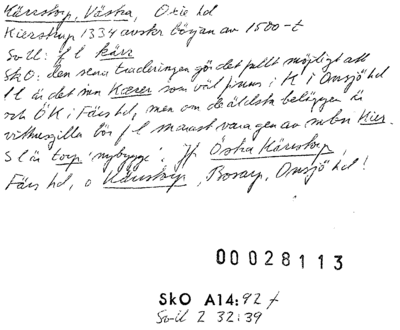 Kärrstorp, Västra, Oxie hd
Kierstrup 1334 avskr början av 1500-t
SvU: f l kärr
SkO: den sena traderingen gör det fullt möjligt att
fl är det mn Kærer som väl finns i K i Onsjö hd
och ÖK i Färs hd, men om de äldsta beläggen är
vitsusgilla bör f l snarast vara gen av mbn Kier.
S l är torp 'nybygge'. Jfr Östra Kärrstorp,
Färs hd, o Kärrstorp, Bosarp, Onsjö hd!
00028113
SkO A14:92 f
SvU 2 32:39